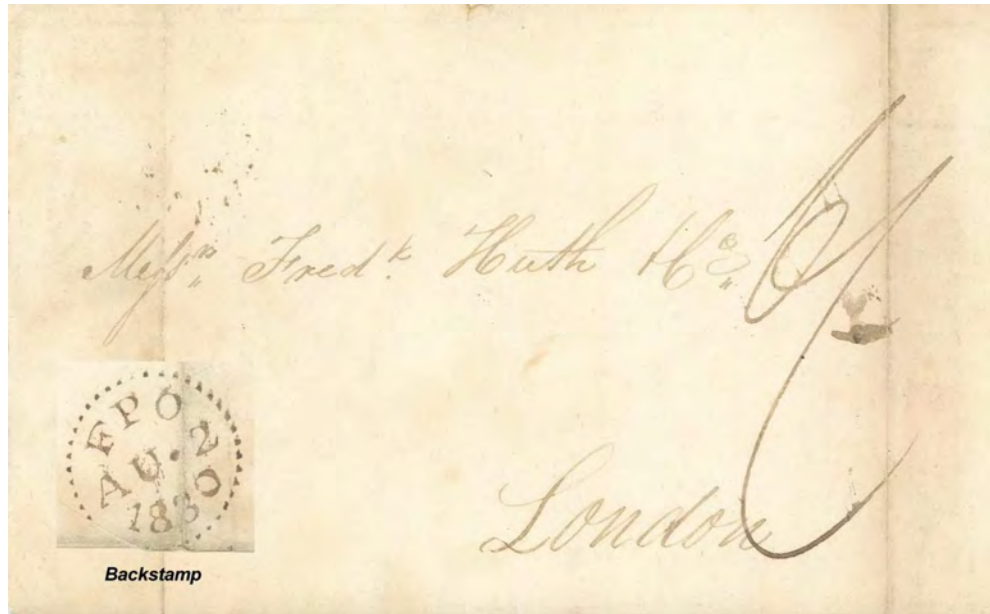 Messrs. Fredk. Huth & Co.
London
FPO
AU. 2
1830
Backstamp